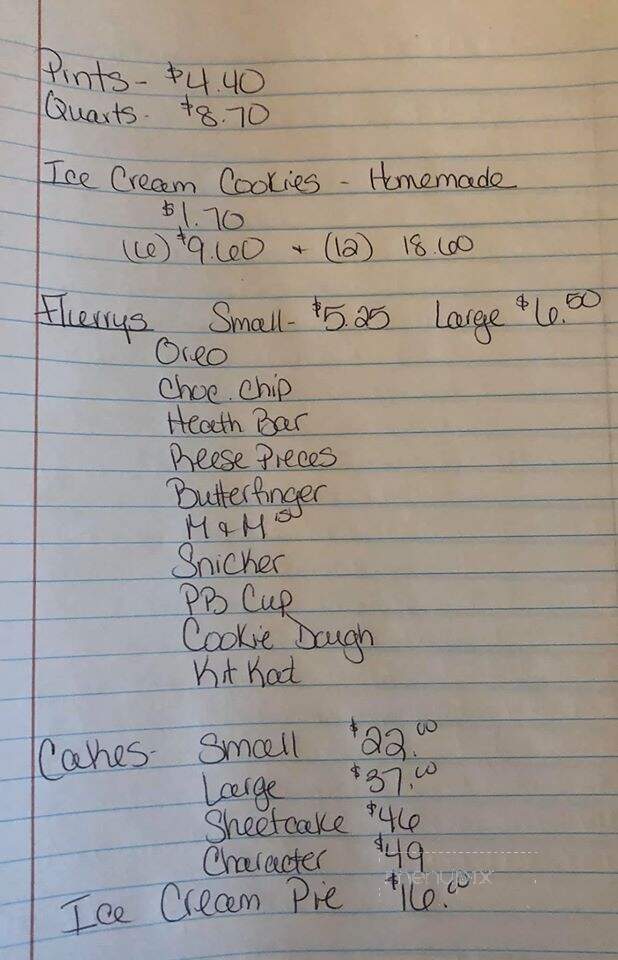 Pints - $4.40
Quarts - $8.70
Ice Cream Cookies - Homemade
$1.70
(6) $9.60 + (12) 18.60
Flurrys Small - $5.25 Large $6.50
Oreo
Choc. Chip
Heath Bar
Reese Pieces
Butterfinger
M & M's
Snicker
PB Cup
Cookie Dough
Kit Kat
Cakes - Small $22.00
Large $37.00
Sheetcake $46
Character $49
menupix
Ice Cream Pie $16.00